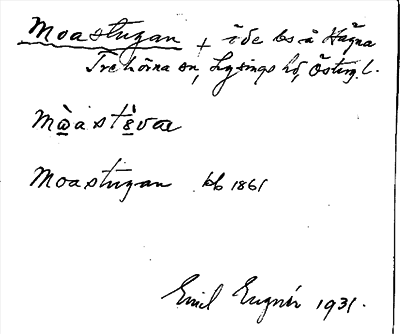 Moastugan + i de bs å Hägna
Trehörna sn, Lysings hd, Östergl.
Mòastù̀vaɩ
Moastugan bb 1861
Emil Eugnér 1931.